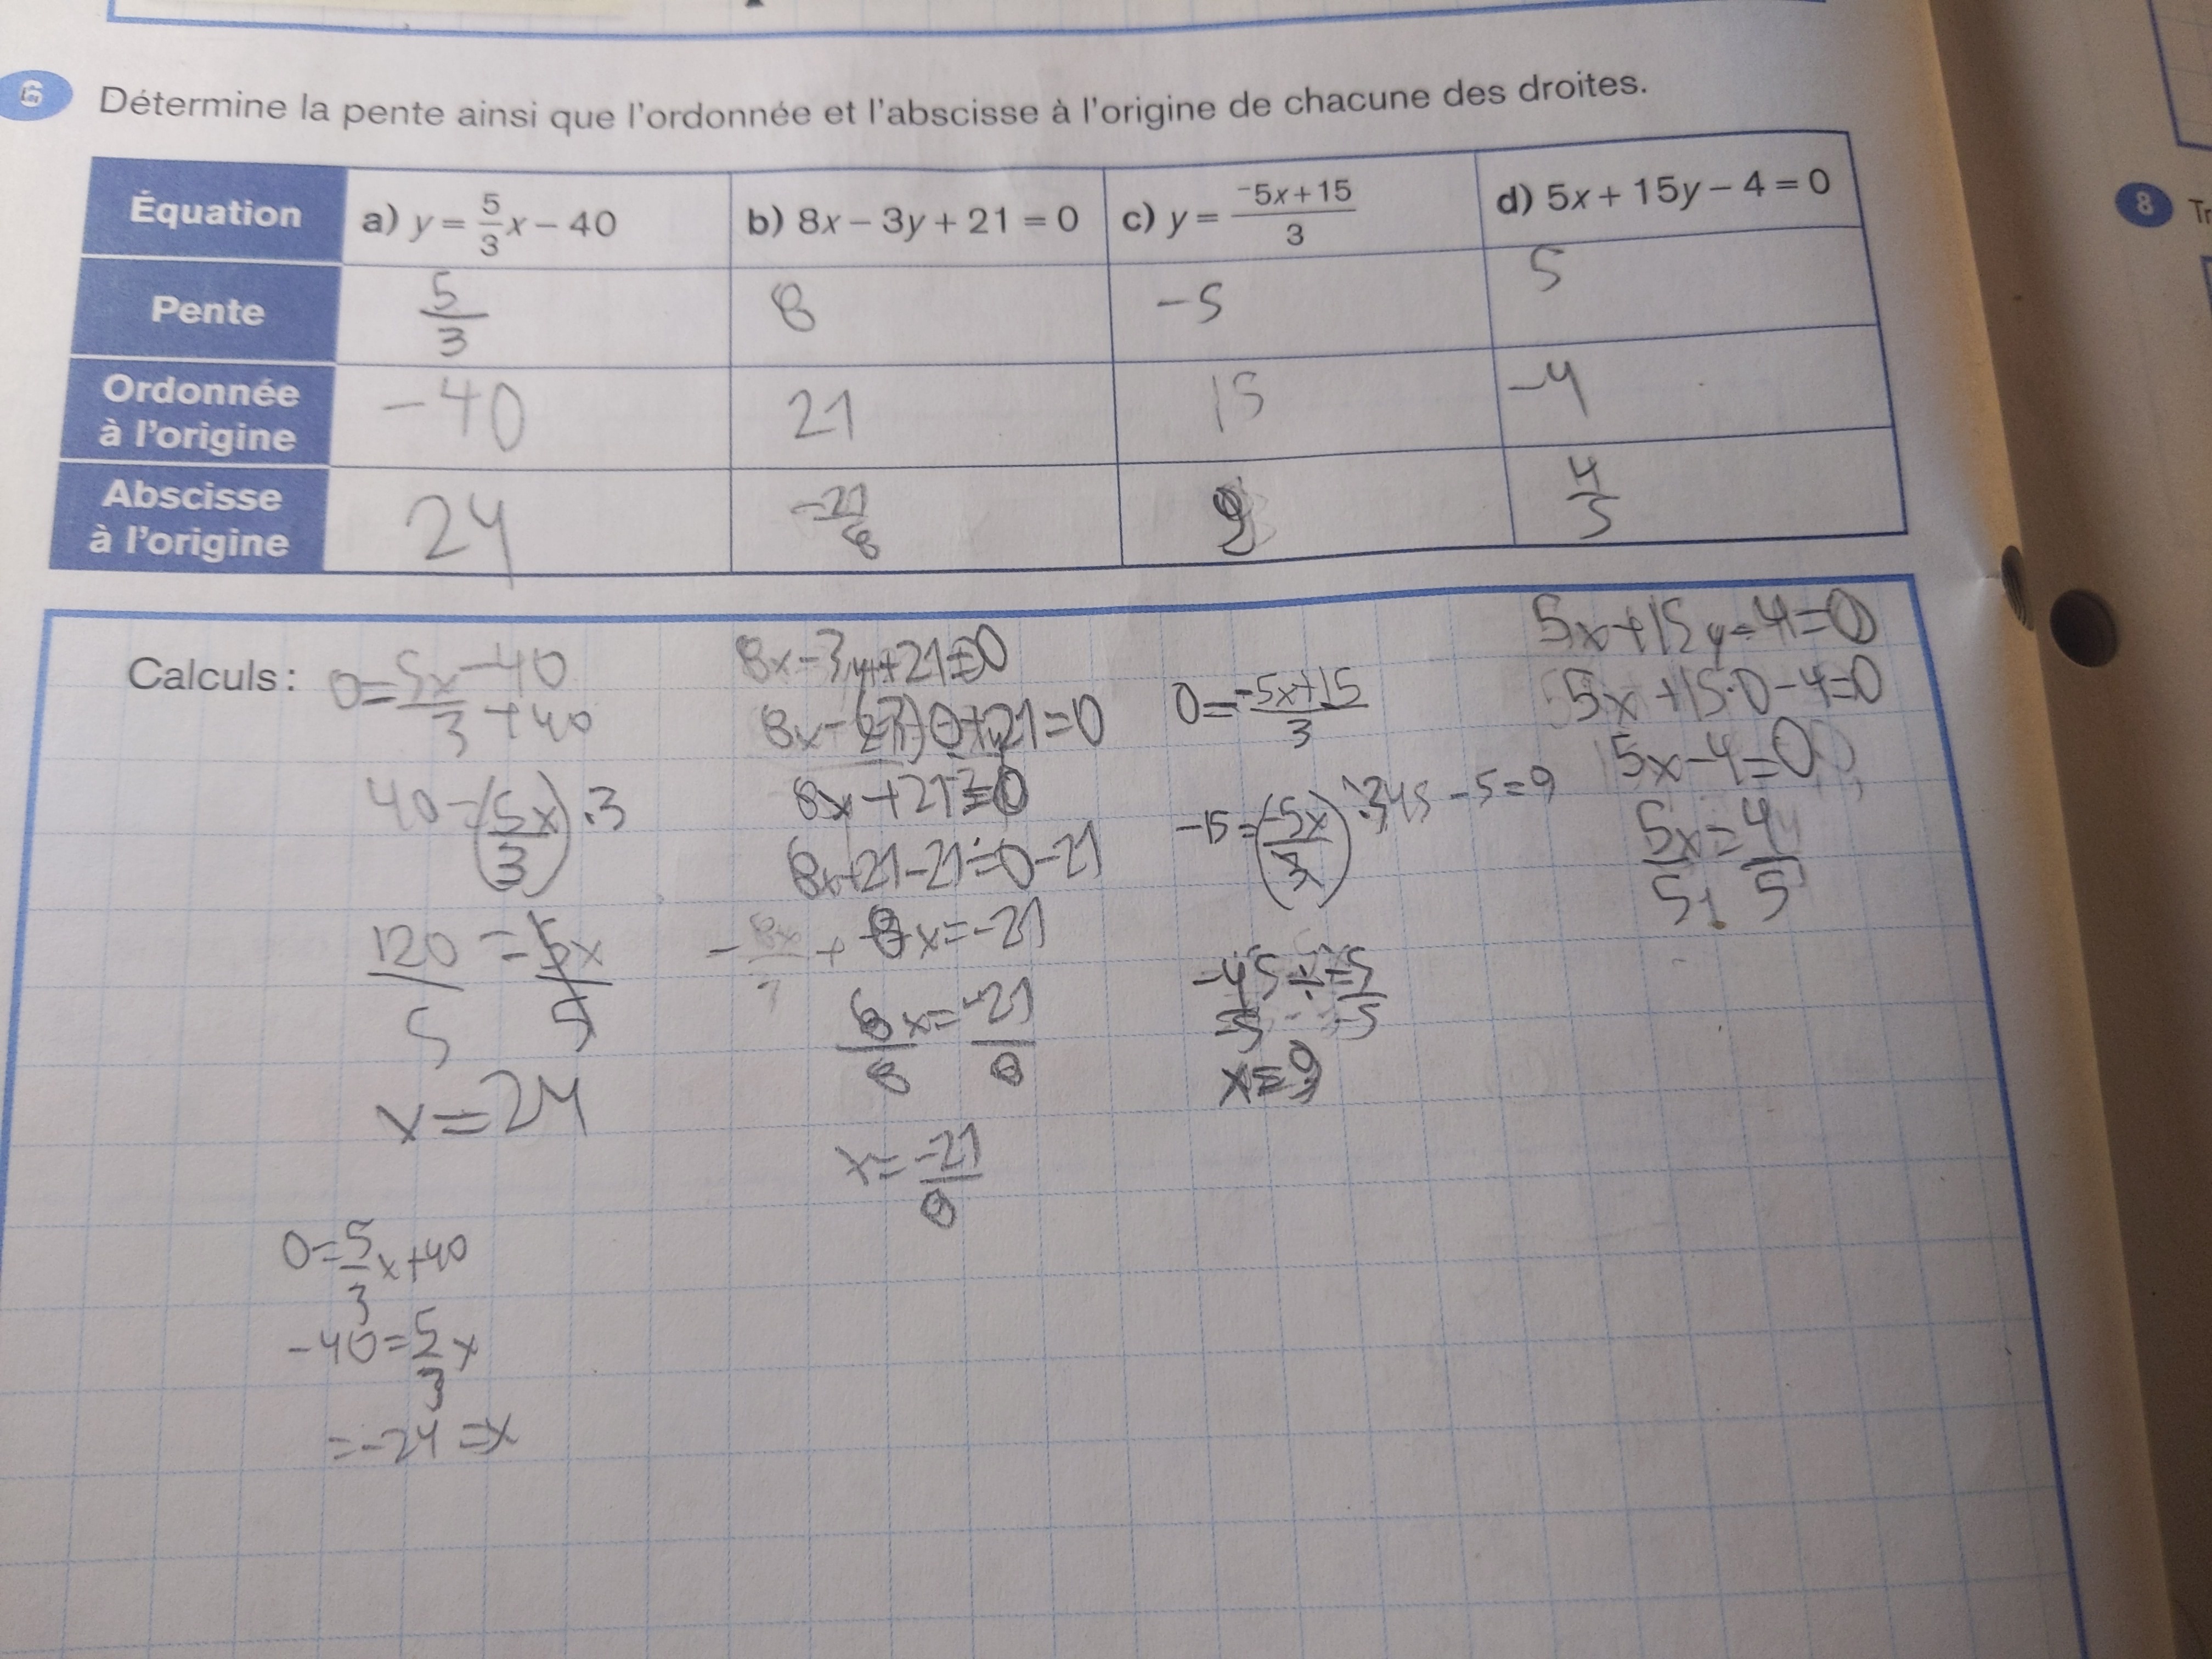 6 Détermine la pente ainsi que l'ordonnée et l'abscisse à l'origine de chacune des droites.
Équation a) y = 5/3 x − 40 b) 8x − 3y + 21 = 0 c) y = ⁻5x + 15 / 3 d) 5x + 15y − 4 = 0
Pente 5/3 8 −5 5
Ordonnée à l'origine −40 21 15 −4
Abscisse à l'origine 24 −21/8 9 4/5
8 Tr
Calculs :
0 = 5x/3 − 40 + 40
40 = (5x/3) · 3
120/5 = 5x/5
x = 24
0 = 5/3 x + 40
−40 = 5/3 x
= −24 = x
8x − 3y + 21 = 0
8x + 21 = 0
8x + 21 − 21 = 0 − 21
8x = −21
8x/8 = −21/8
x = −21/8
0 = −5x + 15 / 3
−15 = (−5x/3) · 3
x = 9
5x + 15y − 4 = 0
5x + 15·0 − 4 = 0
5x − 4 = 0
5x/5 = 4/5